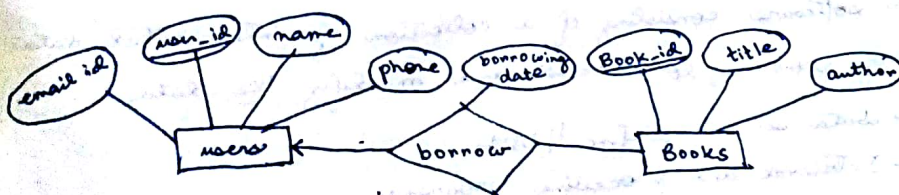 email id
user_id
name
phone
borrowing
date
Book_id
title
author
users
borrow
Books